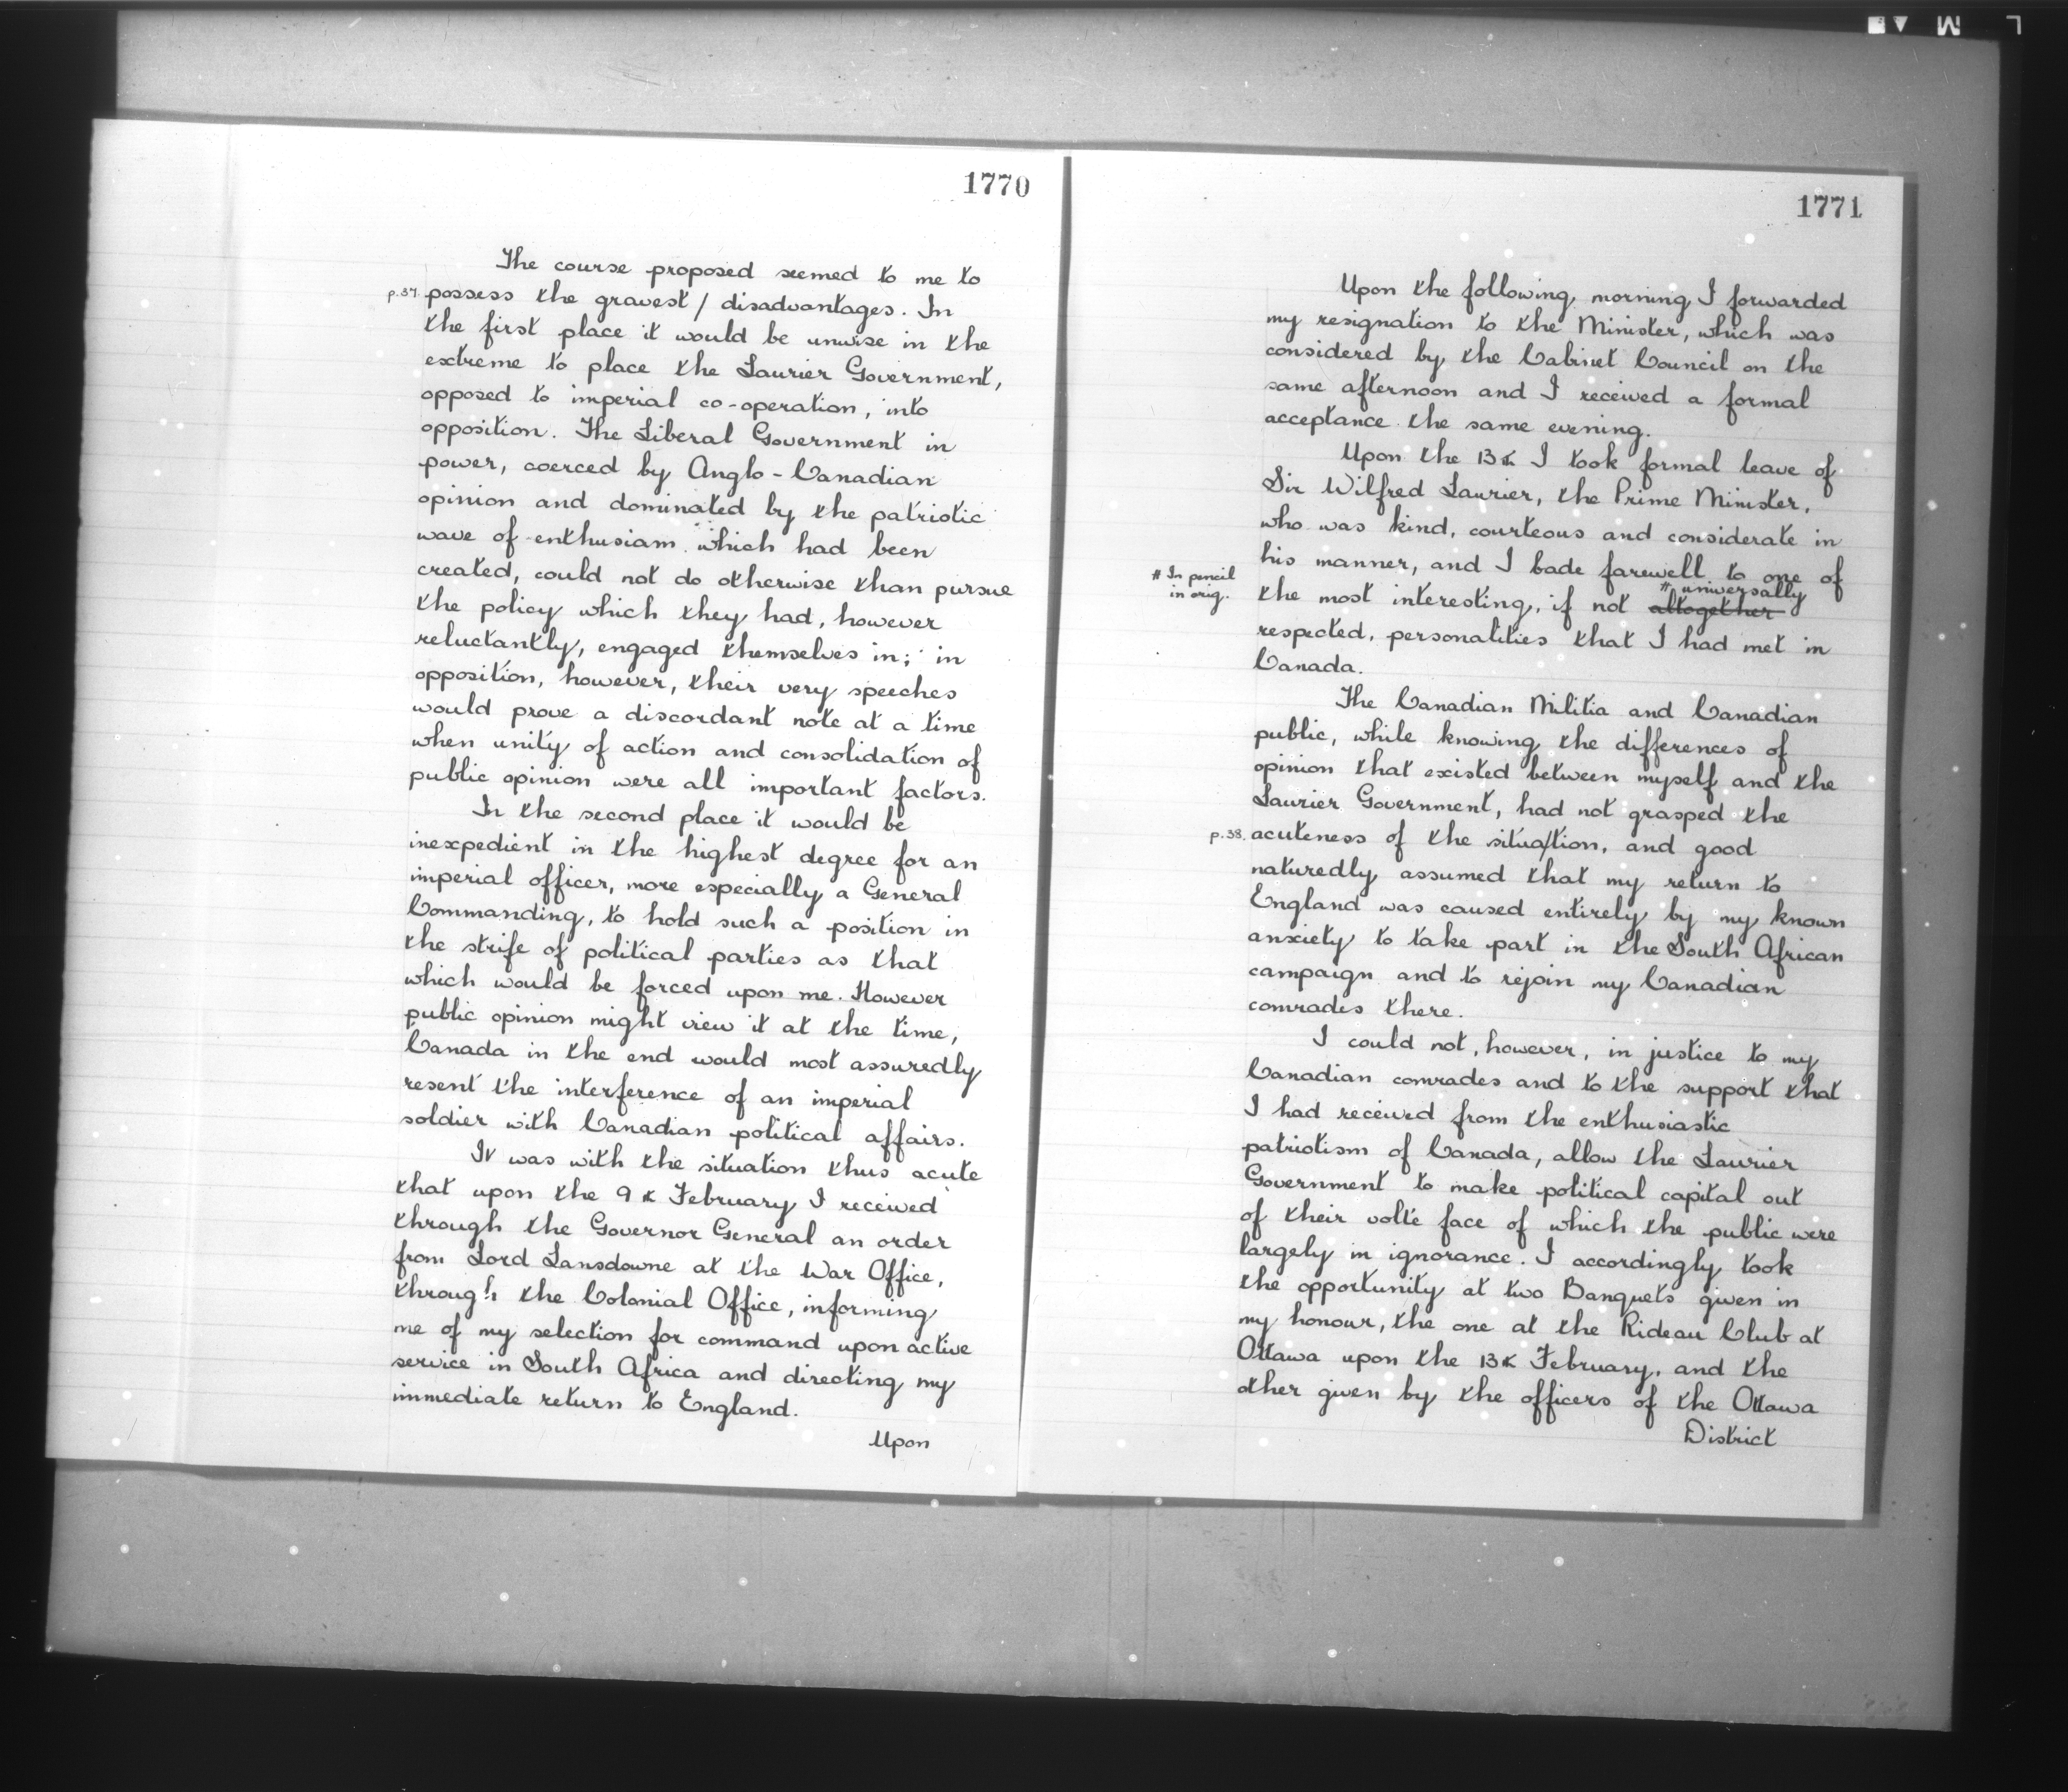 1770
The course proposed seemed to me to
p.37. possess the gravest / disadvantages. In
the first place it would be unwise in the
extreme to place the Laurier Government,
opposed to imperial co-operation, into
opposition. The Liberal Government in
power, coerced by Anglo-Canadian
opinion and dominated by the patriotic
wave of enthusiam which had been
created, could not do otherwise than pursue
the policy which they had, however
reluctantly, engaged themselves in; in
opposition, however, their very speeches
would prove a discordant note at a time
when unity of action and consolidation of
public opinion were all important factors.
In the second place it would be
inexpedient in the highest degree for an
imperial officer, more especially a General
Commanding, to hold such a position in
the strife of political parties as that
which would be forced upon me. However
public opinion might view it at the time,
Canada in the end would most assuredly
resent the interference of an imperial
soldier with Canadian political affairs.
It was with the situation thus acute
that upon the 9th February I received
through the Governor General an order
from Lord Lansdowne at the War Office,
through the Colonial Office, informing
me of my selection for command upon active
service in South Africa and directing my
immediate return to England.
Upon
1771
Upon the following morning I forwarded
my resignation to the Minister, which was
considered by the Cabinet Council on the
same afternoon and I received a formal
acceptance the same evening.
Upon the 13th I took formal leave of
Sir Wilfred Laurier, the Prime Minister,
who was kind, courteous and considerate in
his manner, and I bade farewell to one of
# In pencil
in orig.
# universally
the most interesting, if not altogether
respected, personalities that I had met in
Canada.
The Canadian Militia and Canadian
public, while knowing the differences of
opinion that existed between myself and the
Laurier Government, had not grasped the
p.38. acuteness of the situa/tion, and good
naturedly assumed that my return to
England was caused entirely by my known
anxiety to take part in the South African
campaign and to rejoin my Canadian
comrades there.
I could not, however, in justice to my
Canadian comrades and to the support that
I had received from the enthusiastic
patriotism of Canada, allow the Laurier
Government to make political capital out
of their volte face of which the public were
largely in ignorance. I accordingly took
the opportunity at two Banquets given in
my honour, the one at the Rideau Club at
Ottawa upon the 13th February, and the
other given by the officers of the Ottawa
District